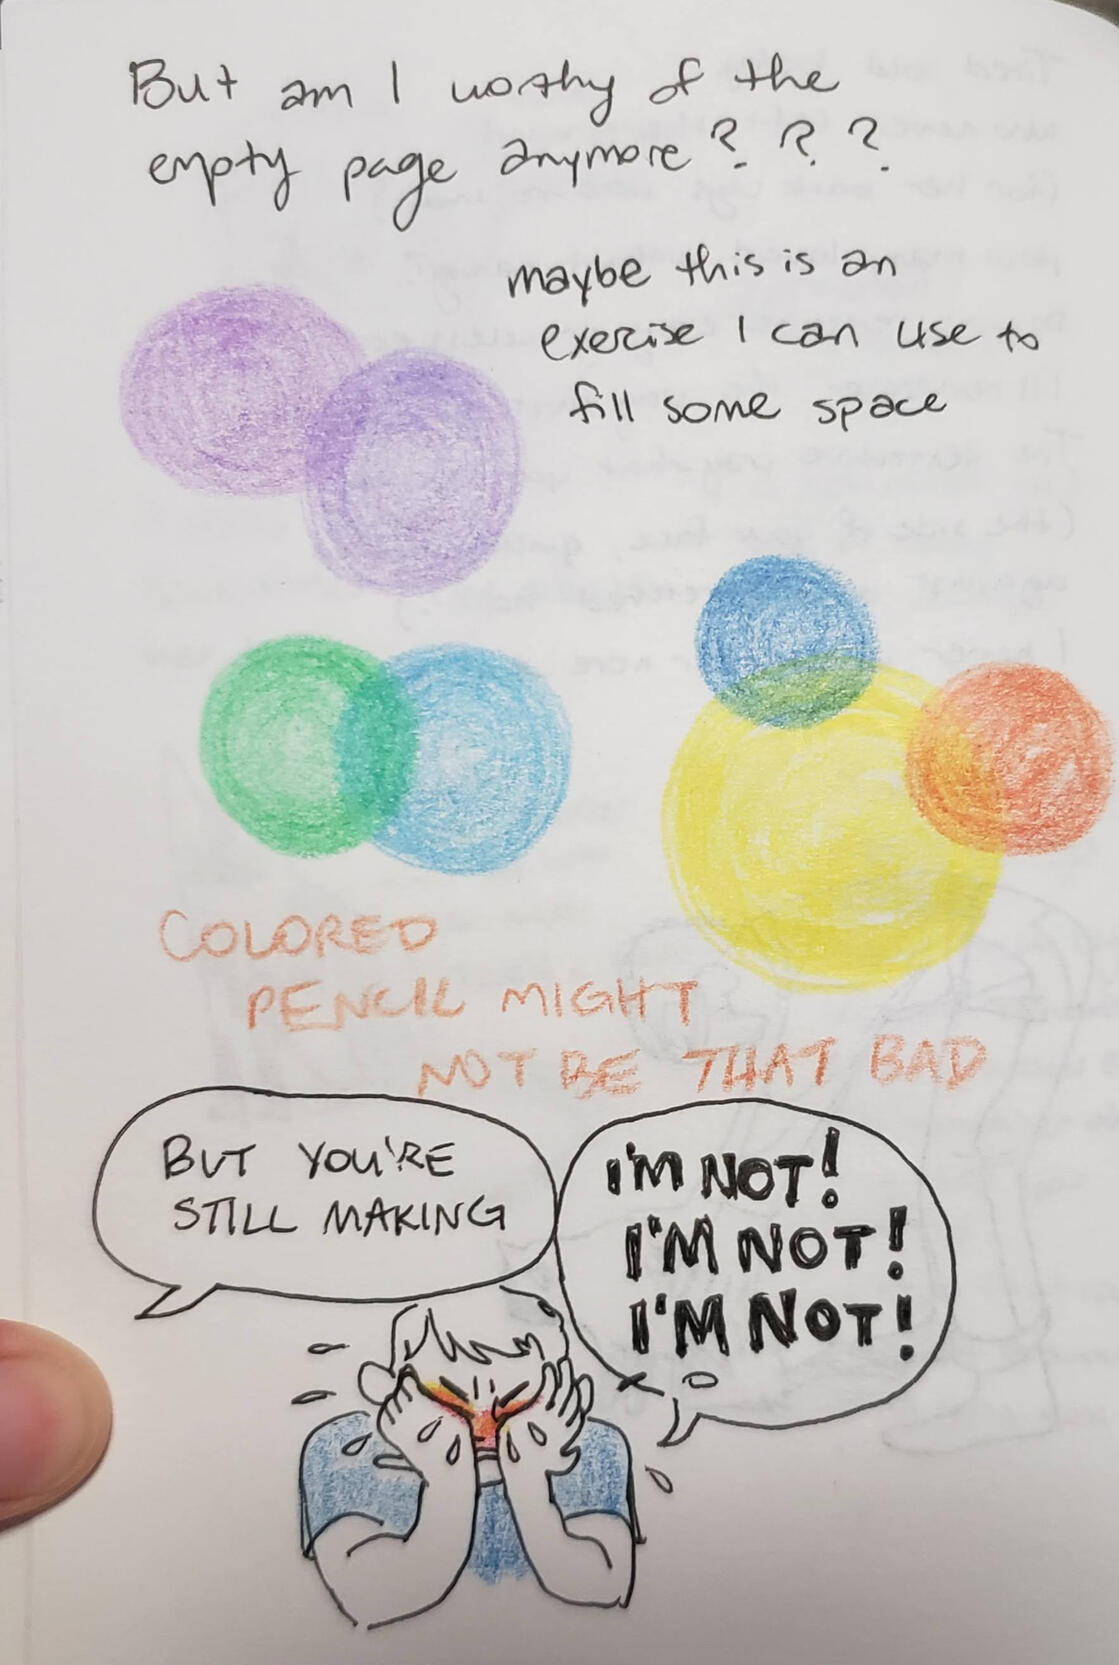 But am I worthy of the
empty page anymore? ? ?
maybe this is an
exerise I can use to
fill some space
COLORED
PENCIL MIGHT
NOT BE THAT BAD
BUT YOU'RE
STILL MAKING
I'M NOT!
I'M NOT!
I'M NOT!